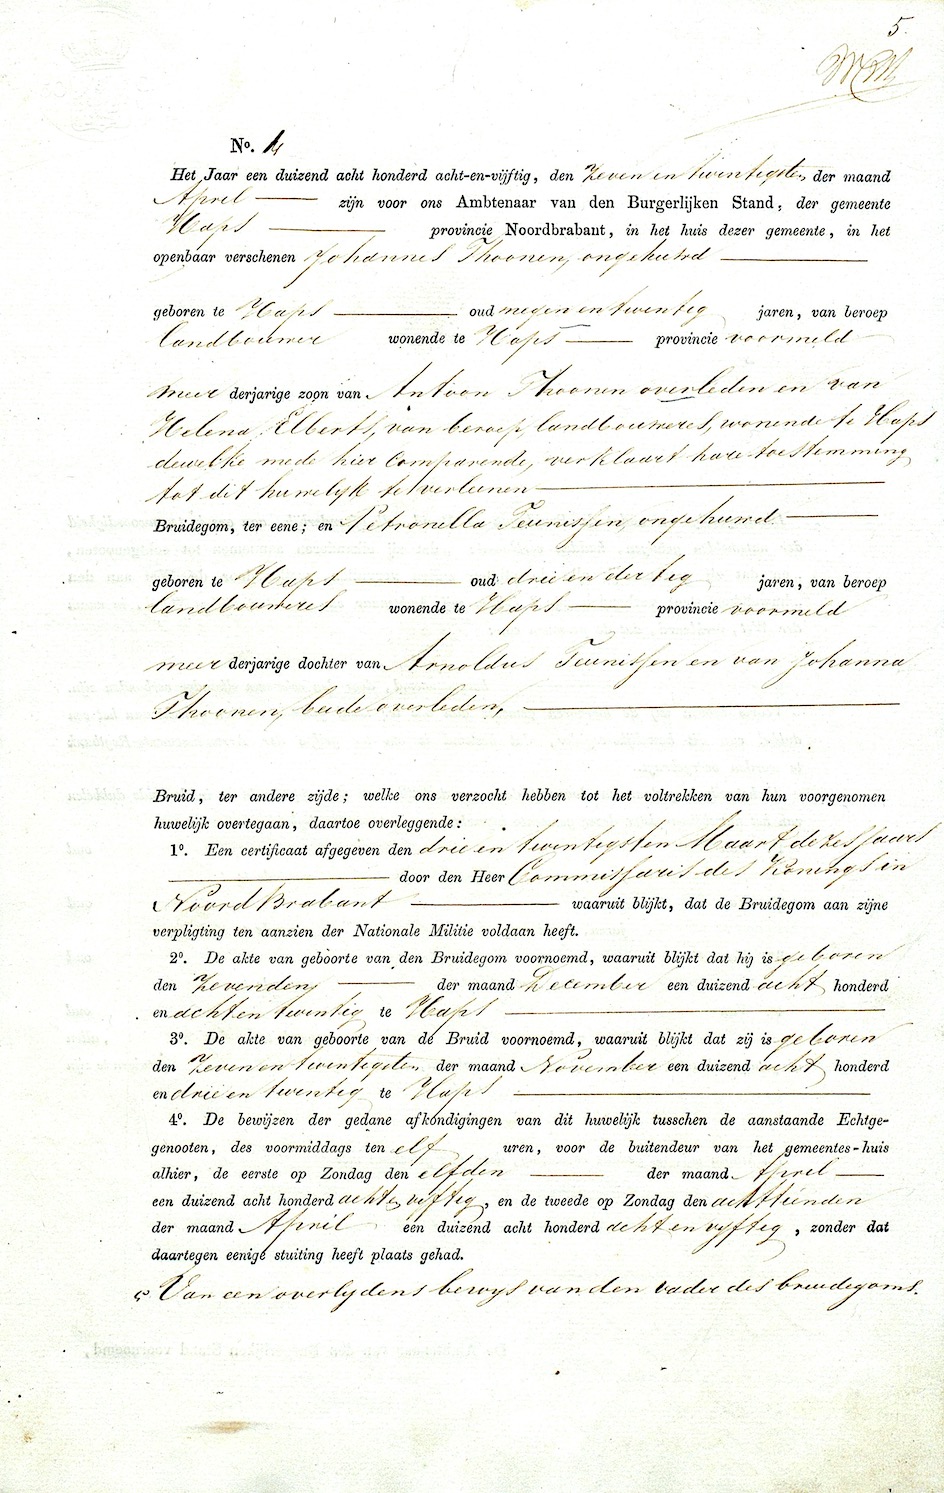 5.
No. 4
Het Jaar een duizend acht honderd acht-en-vijftig, den Zeven en twintigsten der maand
April zijn voor ons Ambtenaar van den Burgerlijken Stand, der gemeente
Haps provincie Noordbrabant, in het huis dezer gemeente, in het
openbaar verschenen Johannes Thoonen, ongehuwd
geboren te Haps oud negen en twintig jaren, van beroep
landbouwer wonende te Haps provincie voormeld
meer derjarige zoon van Antoon Thoonen overleden en van
Helena Elbers, van beroep landbouweres, wonende te Haps
dewelke mede hier comparende, verklaart hare toestemming
tot dit huwelijk te verleenen
Bruidegom, ter eene; en Petronella Teunissen, ongehuwd
geboren te Haps oud drie en dertig jaren, van beroep
landbouweres wonende te Haps provincie voormeld
meer derjarige dochter van Arnoldus Teunissen en van Johanna
Thoonen, beide overleden,
Bruid, ter andere zijde; welke ons verzocht hebben tot het voltrekken van hun voorgenomen
huwelijk overtegaan, daartoe overleggende:
1º. Een certificaat afgegeven den drie en twintigsten Maart dezes jaars
door den Heer Commissaris des Konings in
Noord Brabant waaruit blijkt, dat de Bruidegom aan zijne
verpligting ten aanzien der Nationale Militie voldaan heeft.
2º. De akte van geboorte van den Bruidegom voornoemd, waaruit blijkt dat hij is geboren
den Zevenden der maand December een duizend acht honderd
en acht en twintig te Haps
3º. De akte van geboorte van de Bruid voornoemd, waaruit blijkt dat zij is geboren
den Zeven en twintigsten der maand November een duizend acht honderd
en drie en twintig te Haps
4º. De bewijzen der gedane afkondigingen van dit huwelijk tusschen de aanstaande Echtge-
genooten, des voormiddags ten elf uren, voor de buitendeur van het gemeentes-huis
alhier, de eerste op Zondag den elfden der maand April
een duizend acht honderd acht en vyftig, en de tweede op Zondag den achttienden
der maand April een duizend acht honderd acht en vyftig, zonder dat
daartegen eenige stuiting heeft plaats gehad.
5 Van een overlydens bewys van den vader des bruidegoms.